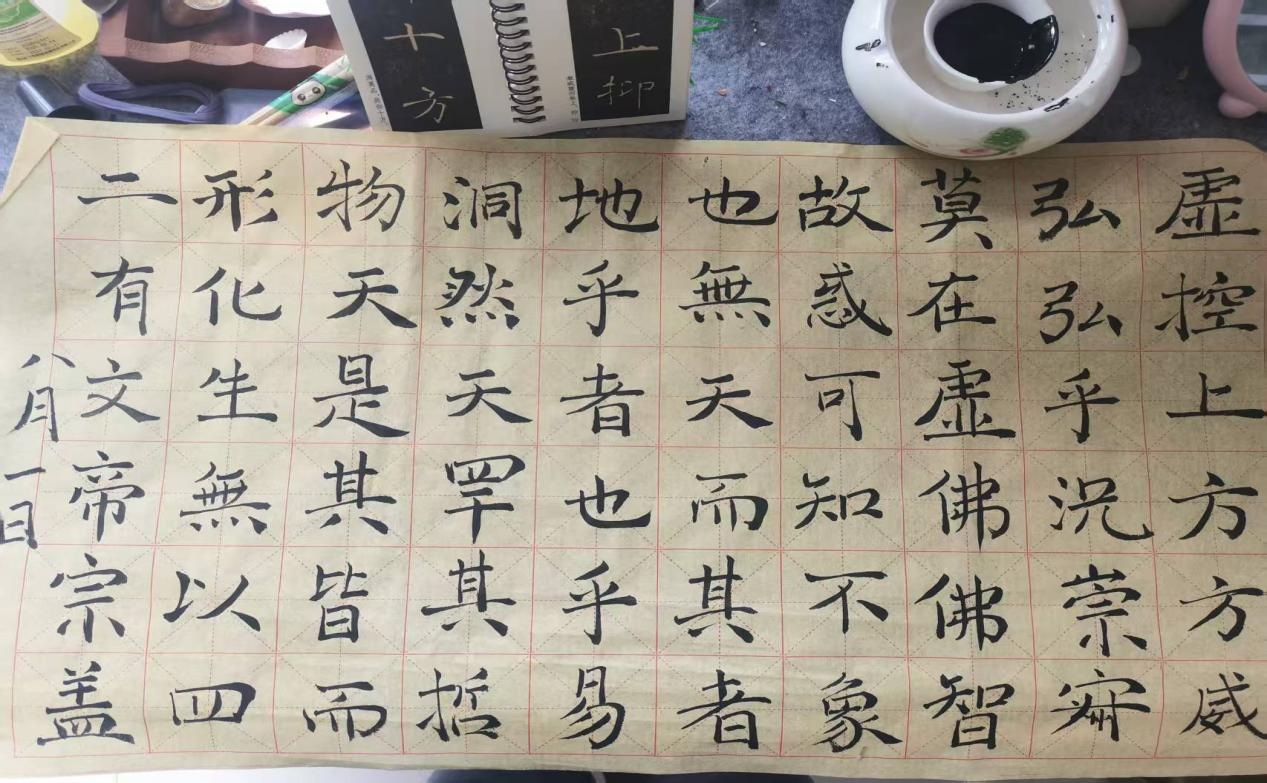 上抑
十方
虚控上方方威
弘弘乎況崇
莫在虚佛佛智
故惑可知不象
也無天而其者
地乎者也乎易
洞然天罕其哲
物天是其皆而
形化生無以四
二有文帝宗盖
八月一日